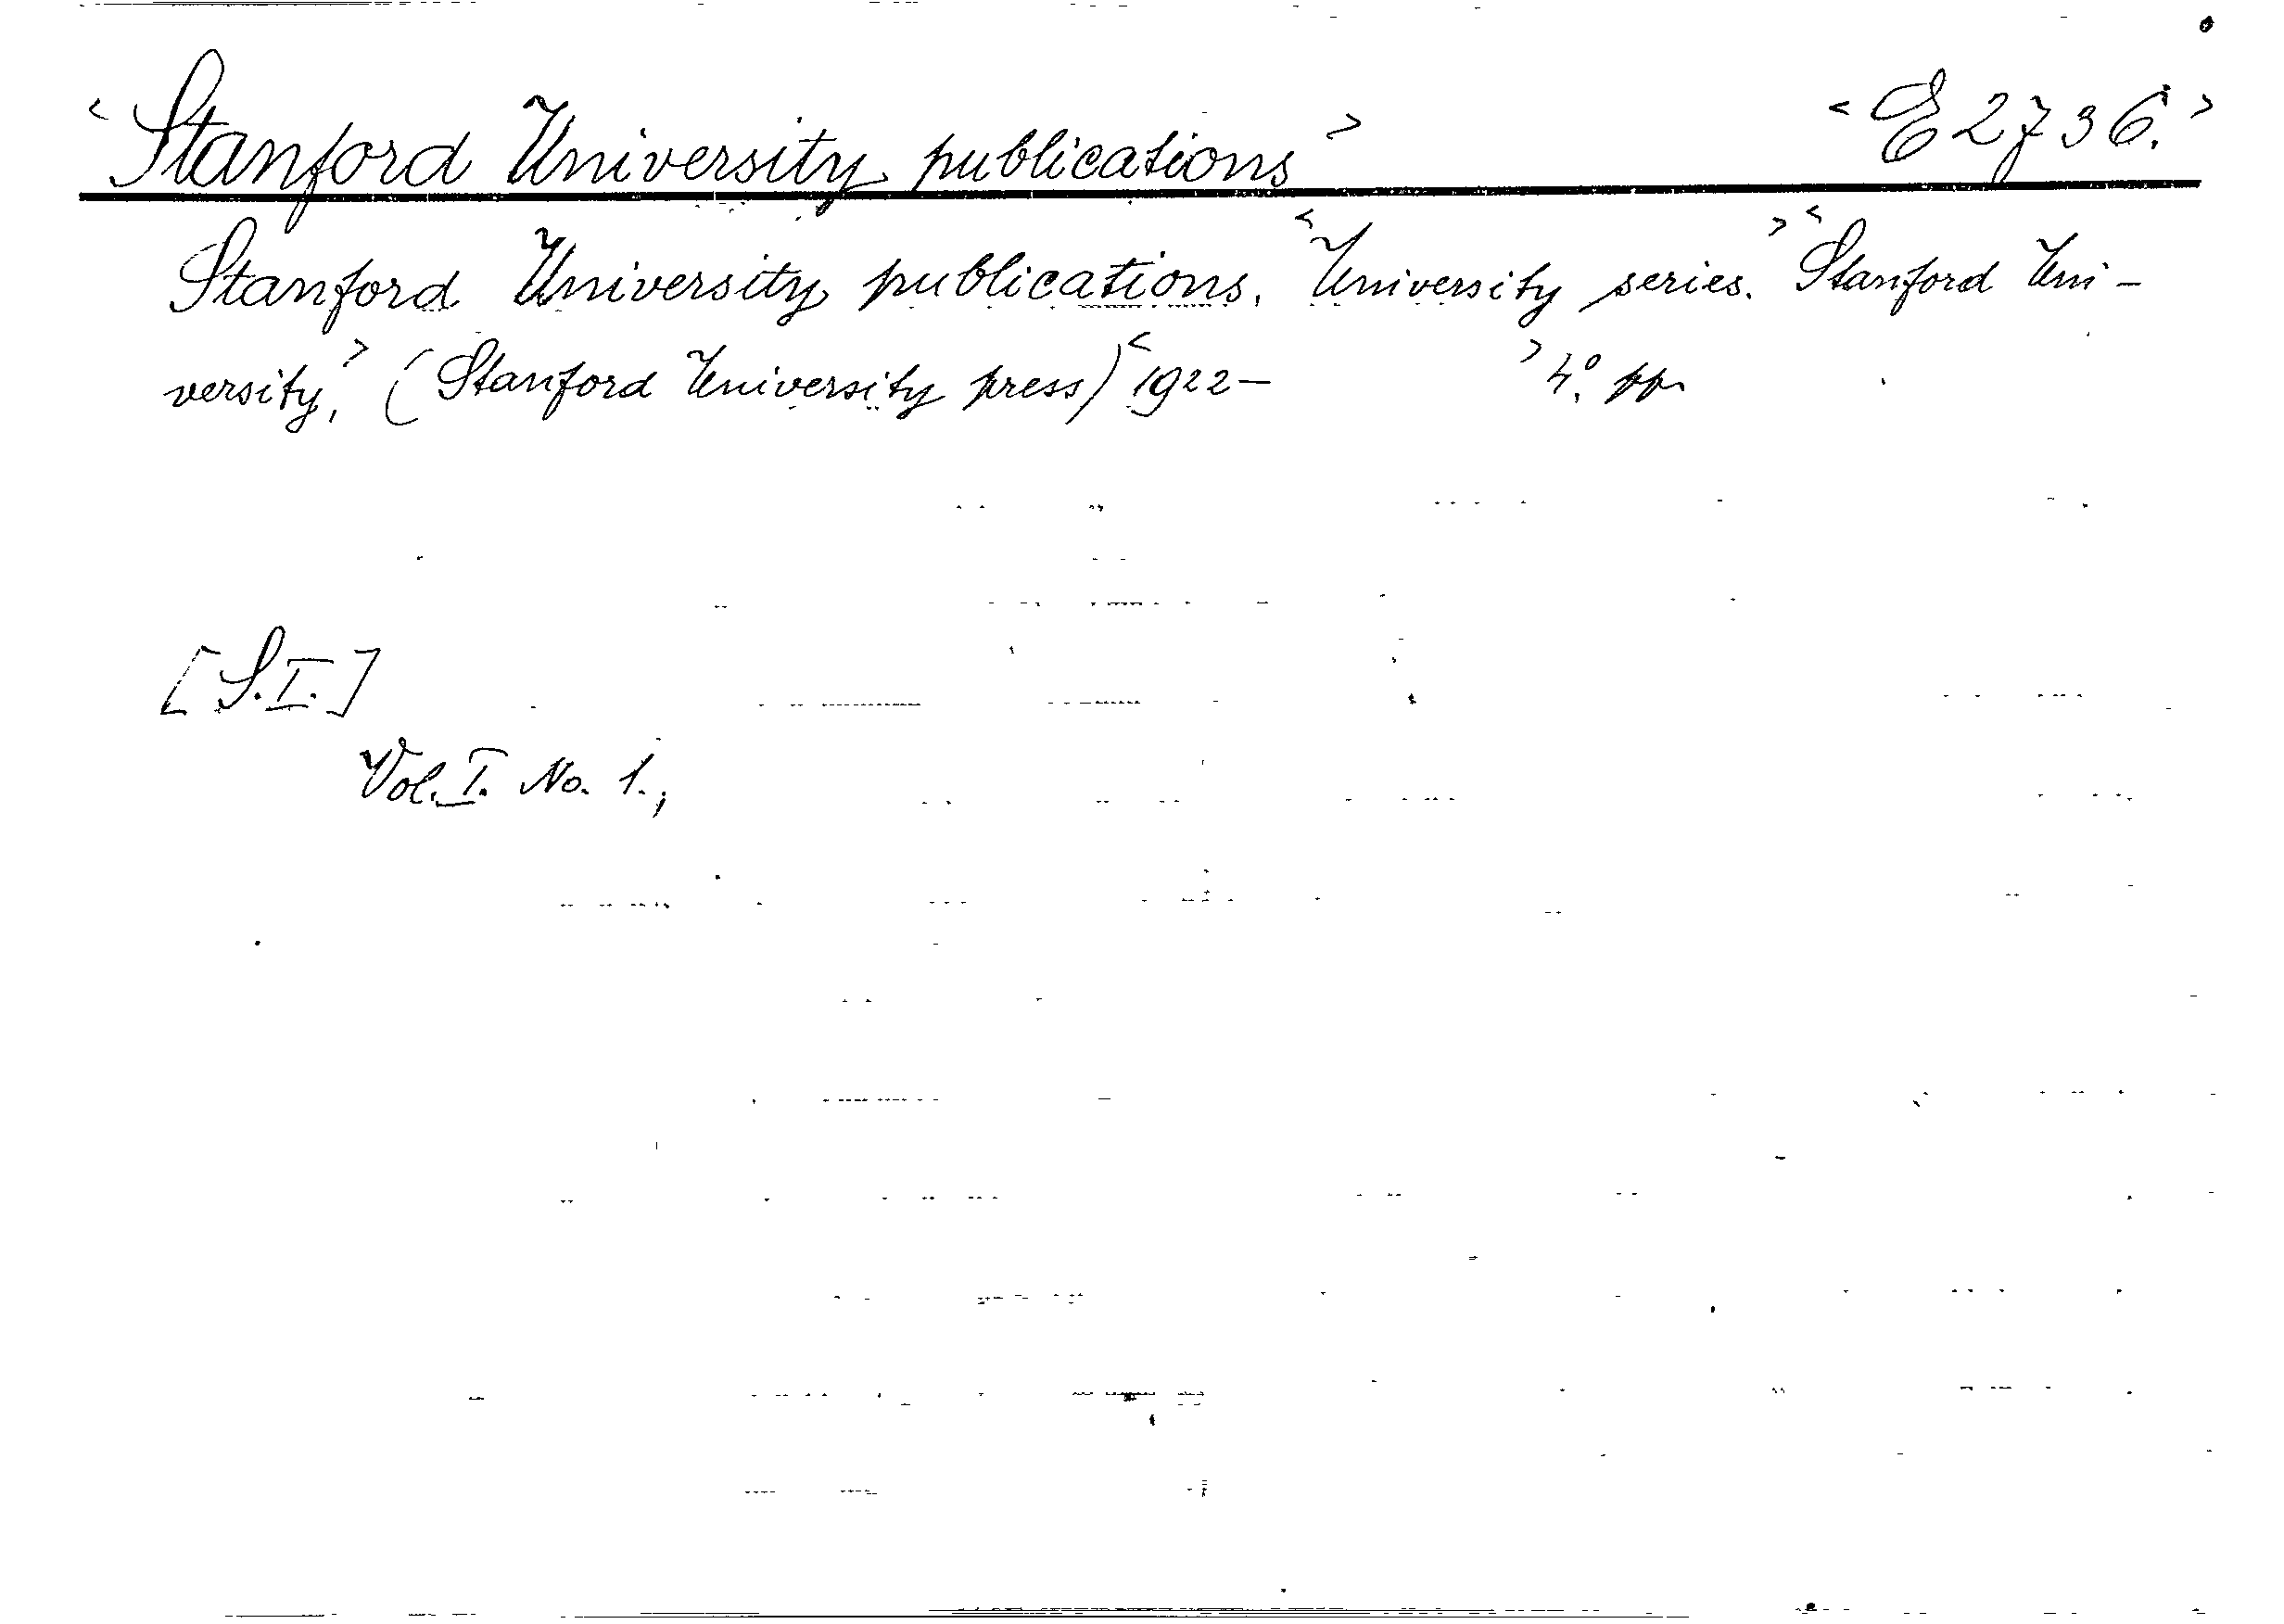 <Stanford University publications> <E 2736.>
Stanford University publications. <University series.> <Stanford Uni-
versity,> (Stanford University press) <1922— > 4°. pp.
[S.I.]
Vol. I. No. 1.,